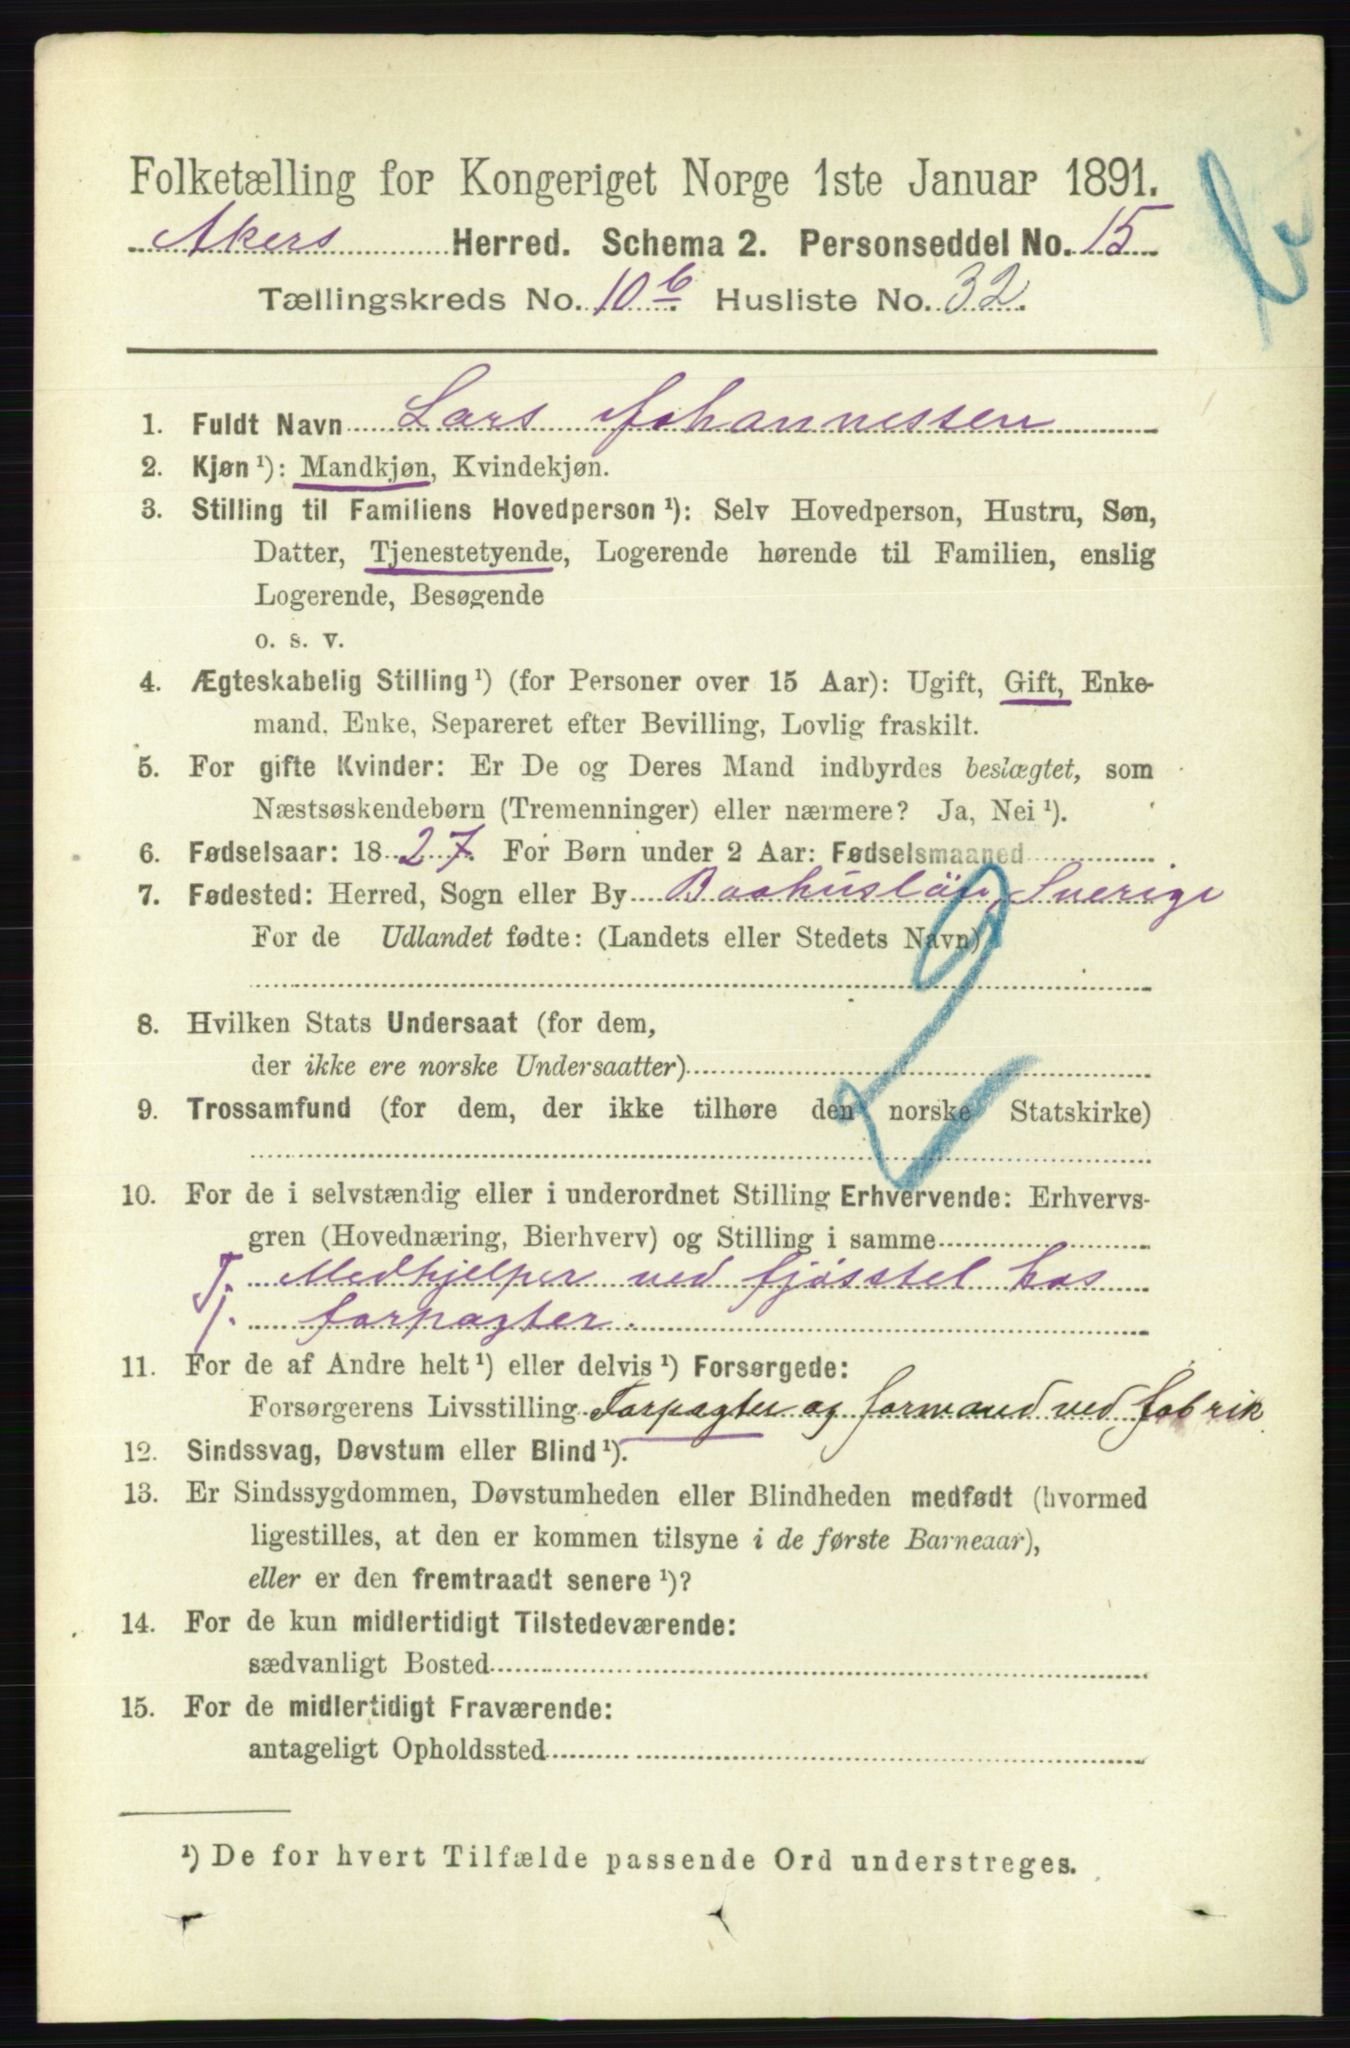 Folketælling for Kongeriget Norge 1ste Januar 1891.
Akers Herred. Schema 2. Personseddel No. 15
Tællingskreds No. 10 b. Husliste No. 32.
1. Fuldt Navn Lars Johannessen
2. Kjøn ¹): Mandkjøn, Kvindekjøn.
3. Stilling til Familiens Hovedperson ¹): Selv Hovedperson, Hustru, Søn,
Datter, Tjenestetyende, Logerende hørende til Familien, enslig
Logerende, Besøgende
o. s. v.
4. Ægteskabelig Stilling ¹) (for Personer over 15 Aar): Ugift, Gift, Enke-
mand, Enke, Separeret efter Bevilling, Lovlig fraskilt.
5. For gifte Kvinder: Er De og Deres Mand indbyrdes beslægtet, som
Næstsøskendebørn (Tremenninger) eller nærmere? Ja, Nei ¹).
6. Fødselsaar: 1827. For Børn under 2 Aar: Fødselsmaaned
7. Fødested: Herred, Sogn eller By Baahuslän, Sverige
For de Udlandet fødte: (Landets eller Stedets Navn)
8. Hvilken Stats Undersaat (for dem,
der ikke ere norske Undersaatter)
9. Trossamfund (for dem, der ikke tilhøre den norske Statskirke)
10. For de i selvstændig eller i underordnet Stilling Erhvervende: Erhvervs-
gren (Hovednæring, Bierhverv) og Stilling i samme
T. Medhjelper ved fjøsstel hos
J. forpagter.
11. For de af Andre helt ¹) eller delvis ¹) Forsørgede:
Forsørgerens Livsstilling Forpagter og formand ved fabrik
12. Sindssvag, Døvstum eller Blind ¹).
13. Er Sindssygdommen, Døvstumheden eller Blindheden medfødt (hvormed
ligestilles, at den er kommen tilsyne i de første Barneaar),
eller er den fremtraadt senere ¹)?
14. For de kun midlertidigt Tilstedeværende:
sædvanligt Bosted
15. For de midlertidigt Fraværende:
antageligt Opholdssted
¹) De for hvert Tilfælde passende Ord understreges.